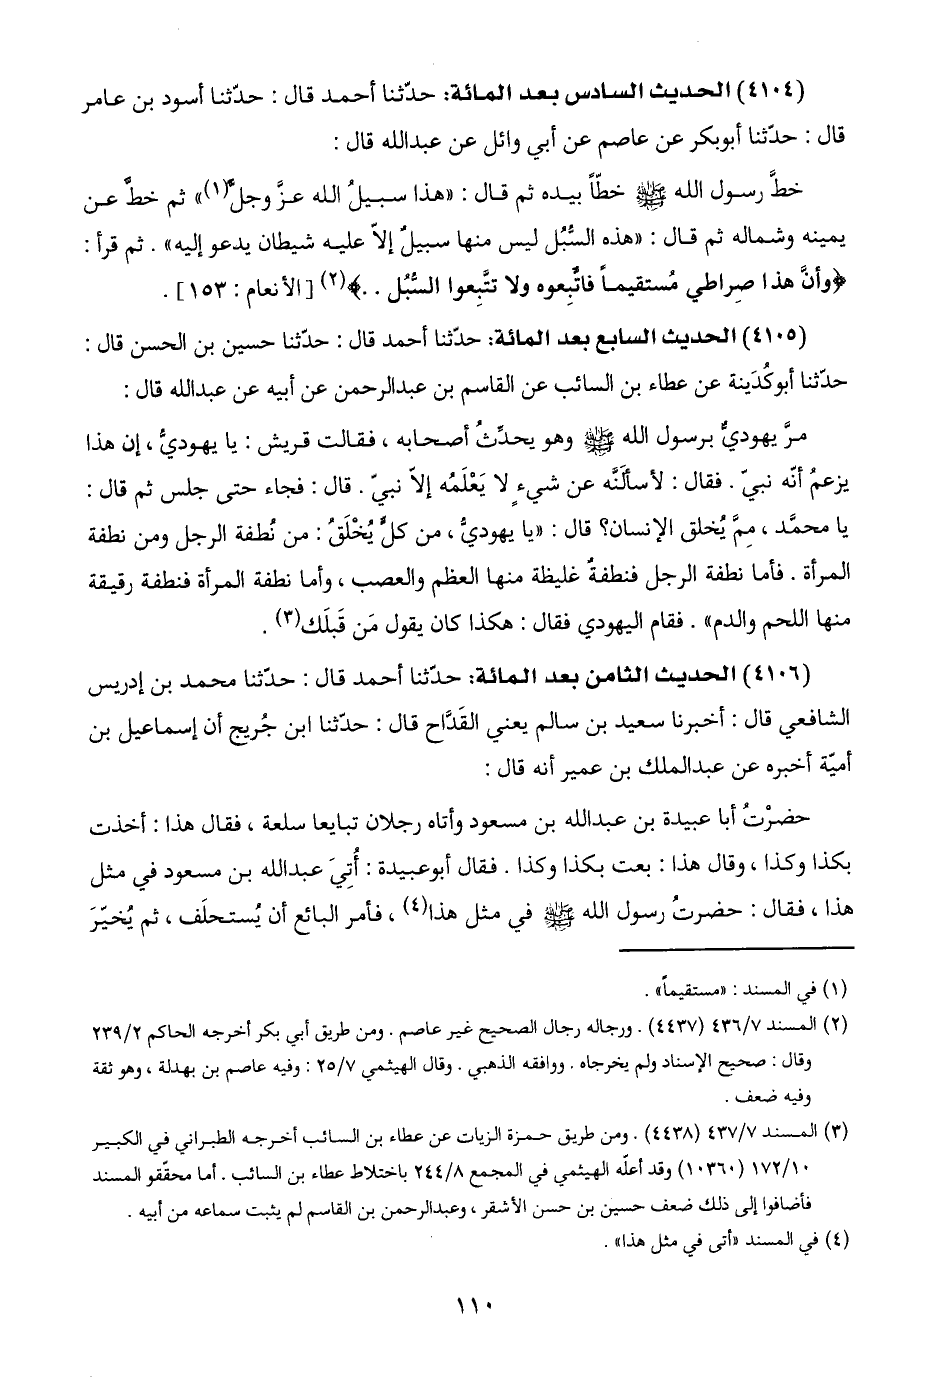 (٤١٠٤) الحديث السادس بعد المائة: حدّثنا أحمد قال : حدّثنا أسود بن عامر
قال : حدّثنا أبوبكر عن عاصم عن أبي وائل عن عبدالله قال :
خطَّ رسول الله ﷺ خطّاً بيده ثم قال : «هذا سبيلُ الله عزَّ وجلّ(١)» ثم خطَّ عن
يمينه وشماله ثم قال : «هذه السُّبُل ليس منها سبيلٌ إلاّ عليه شيطان يدعو إليه» . ثم قرأ :
﴿وأنَّ هذا صِراطي مُستقيماً فاتَّبِعوه ولا تتَّبِعوا السُّبُل . .﴾(٢) [الأنعام : ١٥٣] .
(٤١٠٥) الحديث السابع بعد المائة: حدّثنا أحمد قال : حدّثنا حسين بن الحسن قال :
حدّثنا أبوكُدَينة عن عطاء بن السائب عن القاسم بن عبدالرحمن عن أبيه عن عبدالله قال :
مرَّ يهوديٌّ برسول الله ﷺ وهو يحدِّثُ أصحابه ، فقالت قريش : يا يهوديُّ ، إن هذا
يزعمُ أنّه نبيّ . فقال : لأسألَنَّه عن شيءٍ لا يَعْلَمُه إلاّ نبيّ . قال : فجاء حتى جلس ثم قال :
يا محمَّد ، مِمَّ يُخلق الإنسان؟ قال : «يا يهوديُّ ، من كلٍّ يُخْلَقُ : من نُطفة الرجل ومن نطفة
المرأة . فأما نطفة الرجل فنطفةٌ غليظة منها العظم والعصب ، وأما نطفة المرأة فنطفة رقيقة
منها اللحم والدم» . فقام اليهودي فقال : هكذا كان يقول مَن قَبلَك(٣) .
(٤١٠٦) الحديث الثامن بعد المائة: حدّثنا أحمد قال : حدّثنا محمد بن إدريس
الشافعي قال : أخبرنا سعيد بن سالم يعني القَدَّاح قال : حدّثنا ابن جُريج أن إسماعيل بن
أميّة أخبره عن عبدالملك بن عمير أنه قال :
حضرْتُ أبا عبيدة بن عبدالله بن مسعود وأتاه رجلان تبايعا سلعة ، فقال هذا : أخذت
بكذا وكذا ، وقال هذا : بعت بكذا وكذا . فقال أبوعبيدة : أُتِيَ عبدالله بن مسعود في مثل
هذا ، فقال : حضرتُ رسول الله ﷺ في مثل هذا(٤) ، فأمر البائع أن يُستحلَف ، ثم يُخيَّرَ
(١) في المسند : «مستقيماً» .
(٢) المسند ٤٣٦/٧ (٤٤٣٧) . ورجاله رجال الصحيح غير عاصم . ومن طريق أبي بكر أخرجه الحاكم ٢٣٩/٢
وقال : صحيح الإسناد ولم يخرجاه . ووافقه الذهبي . وقال الهيثمي ٢٥/٧ : وفيه عاصم بن بهدلة ، وهو ثقة
وفيه ضعف .
(٣) المسند ٤٣٧/٧ (٤٤٣٨) . ومن طريق حمزة الزيات عن عطاء بن السائب أخرجه الطبراني في الكبير
١٧٢/١٠ (١٠٣٦٠) وقد أعلّه الهيثمي في المجمع ٢٤٤/٨ باختلاط عطاء بن السائب . أما محقّقو المسند
فأضافوا إلى ذلك ضعف حسين بن حسن الأشقر ، وعبدالرحمن بن القاسم لم يثبت سماعه من أبيه .
(٤) في المسند «أتى في مثل هذا» .
١١٠